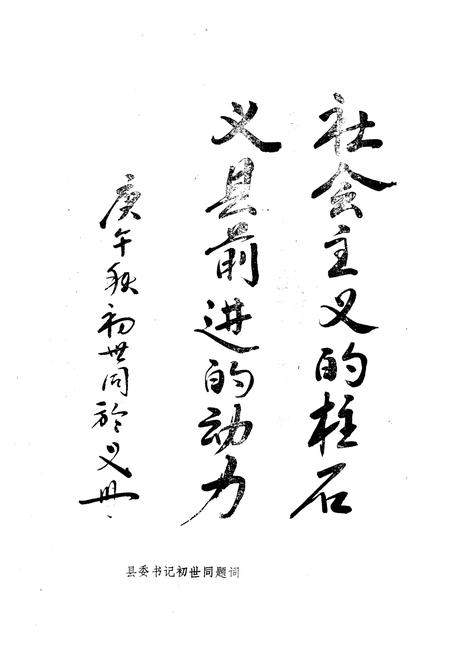 社会主义的柱石
义县前进的动力
庚午秋初世同於义县
县委书记初世同题词